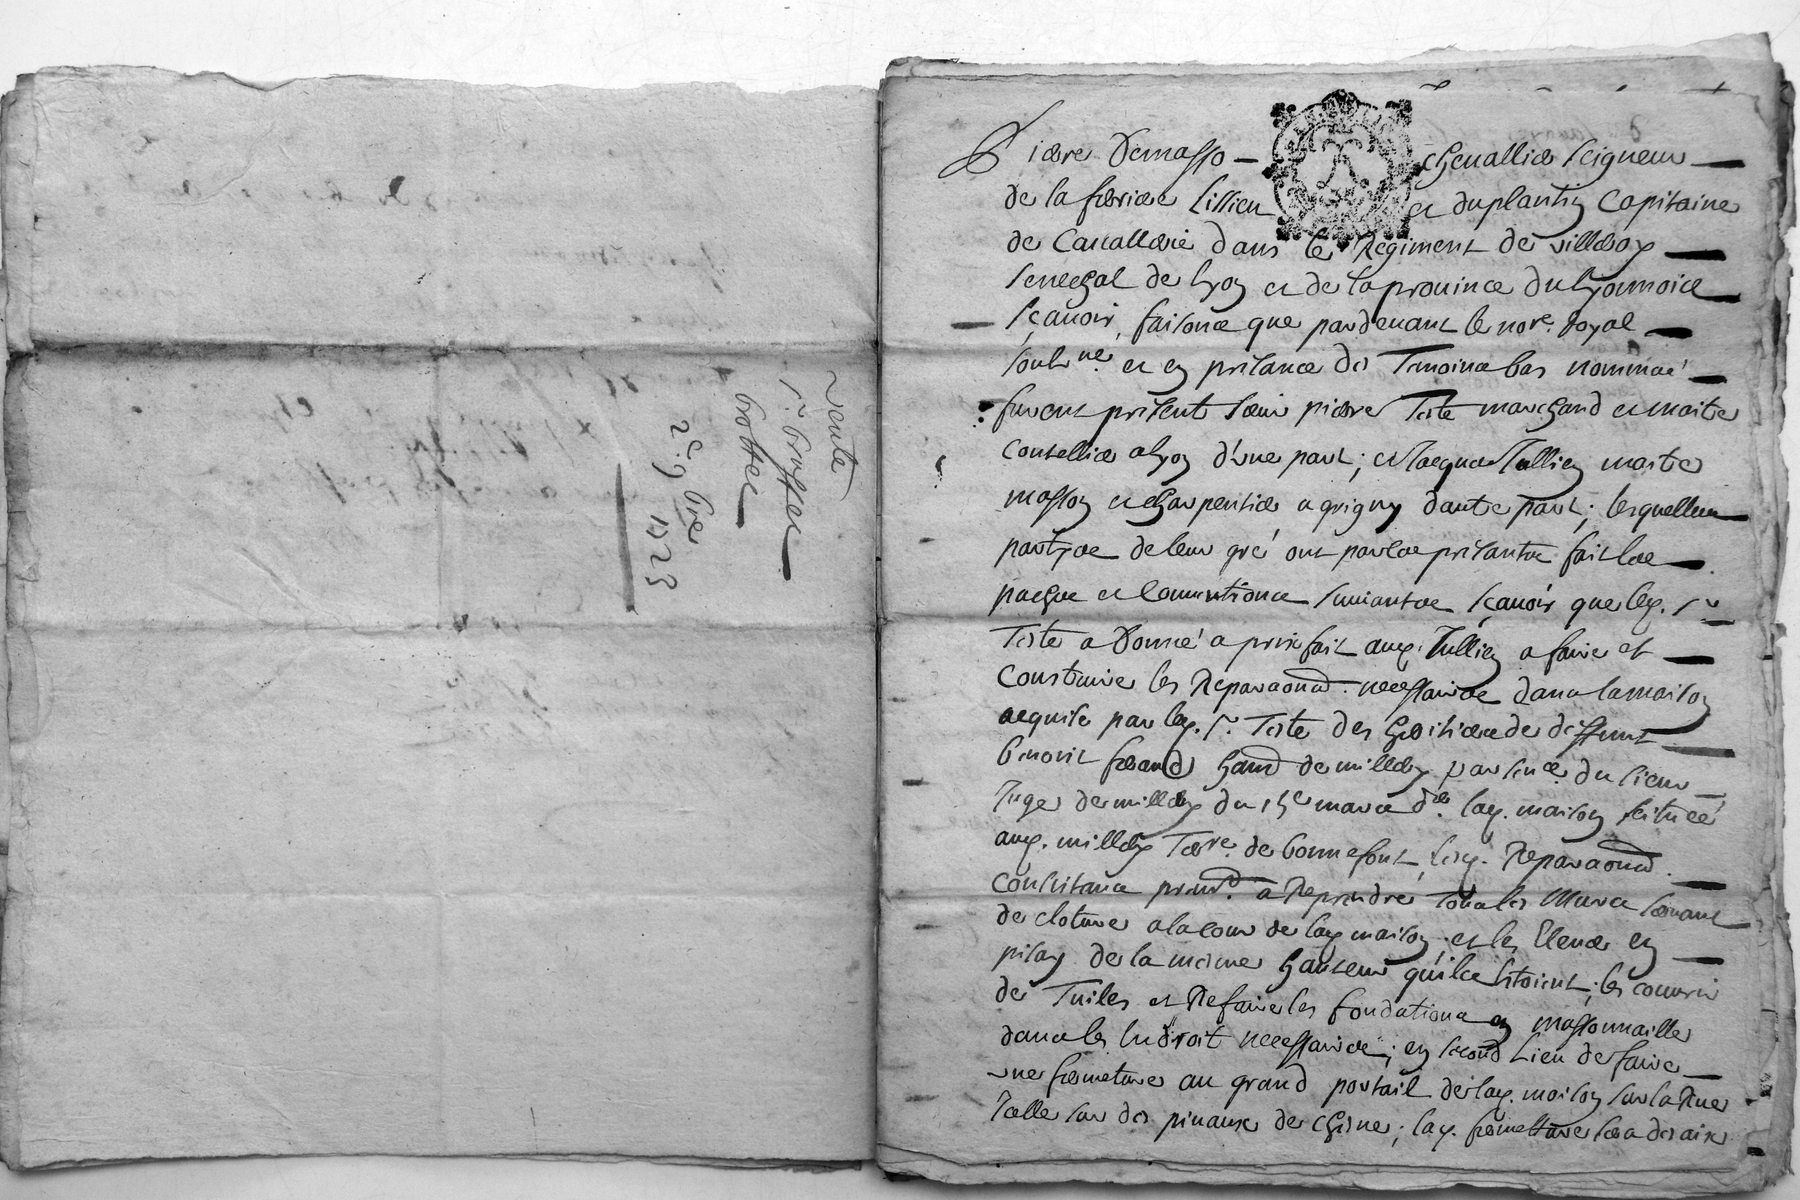 vente
Sr. brossec
brottec
2e. 9bre
1723
Pierre Demasso chevallier seigneur
de la feriere Lissieu et duplantin Capitaine
de Cavallerie dans le Regiment de villeroy
senechal de lyon et de la province du lyonnois
sçavoir, faisons que pardevant le nore. royal
soubsné et en presance des Temoins bas nommés
furent present sieur pierre Teste marchand et maitre
coutellier a lyon d'une part; et Jacques Jullien maitre
masson et charpentier a grigny dautre part; lesquelles
partyes de leur gré ont par les presantes fait les
paches et conventions suivantes sçavoir que led. Sr.
Teste a Donné a prix fait aud. Jullien a faire et
construire les Reparaons. necessaires dans la maison
acquise par led. Sr. Teste des heritiers de deffunt
benoist de millery par du sieur
Juge de millery du 15e mars der. lad. maison scituée
aud. millery Terre. de bonnefont, lesd. Reparaons.
consistans premt. a Reprendre tous les Murs servant
de cloture a la cour de lad. maison, et les Elever en
pisay de la mesme hauteur qu'ils estoient, les couvrir
de Tuiles et Refaire les fondations en massonnaille
dans les Endroit necessaires; en second Lieu de faire
une fermeture au grand portail de lad. maison sur la Rue
Icelle sur des pivaux de chesne; lad. fermetture sera des aix